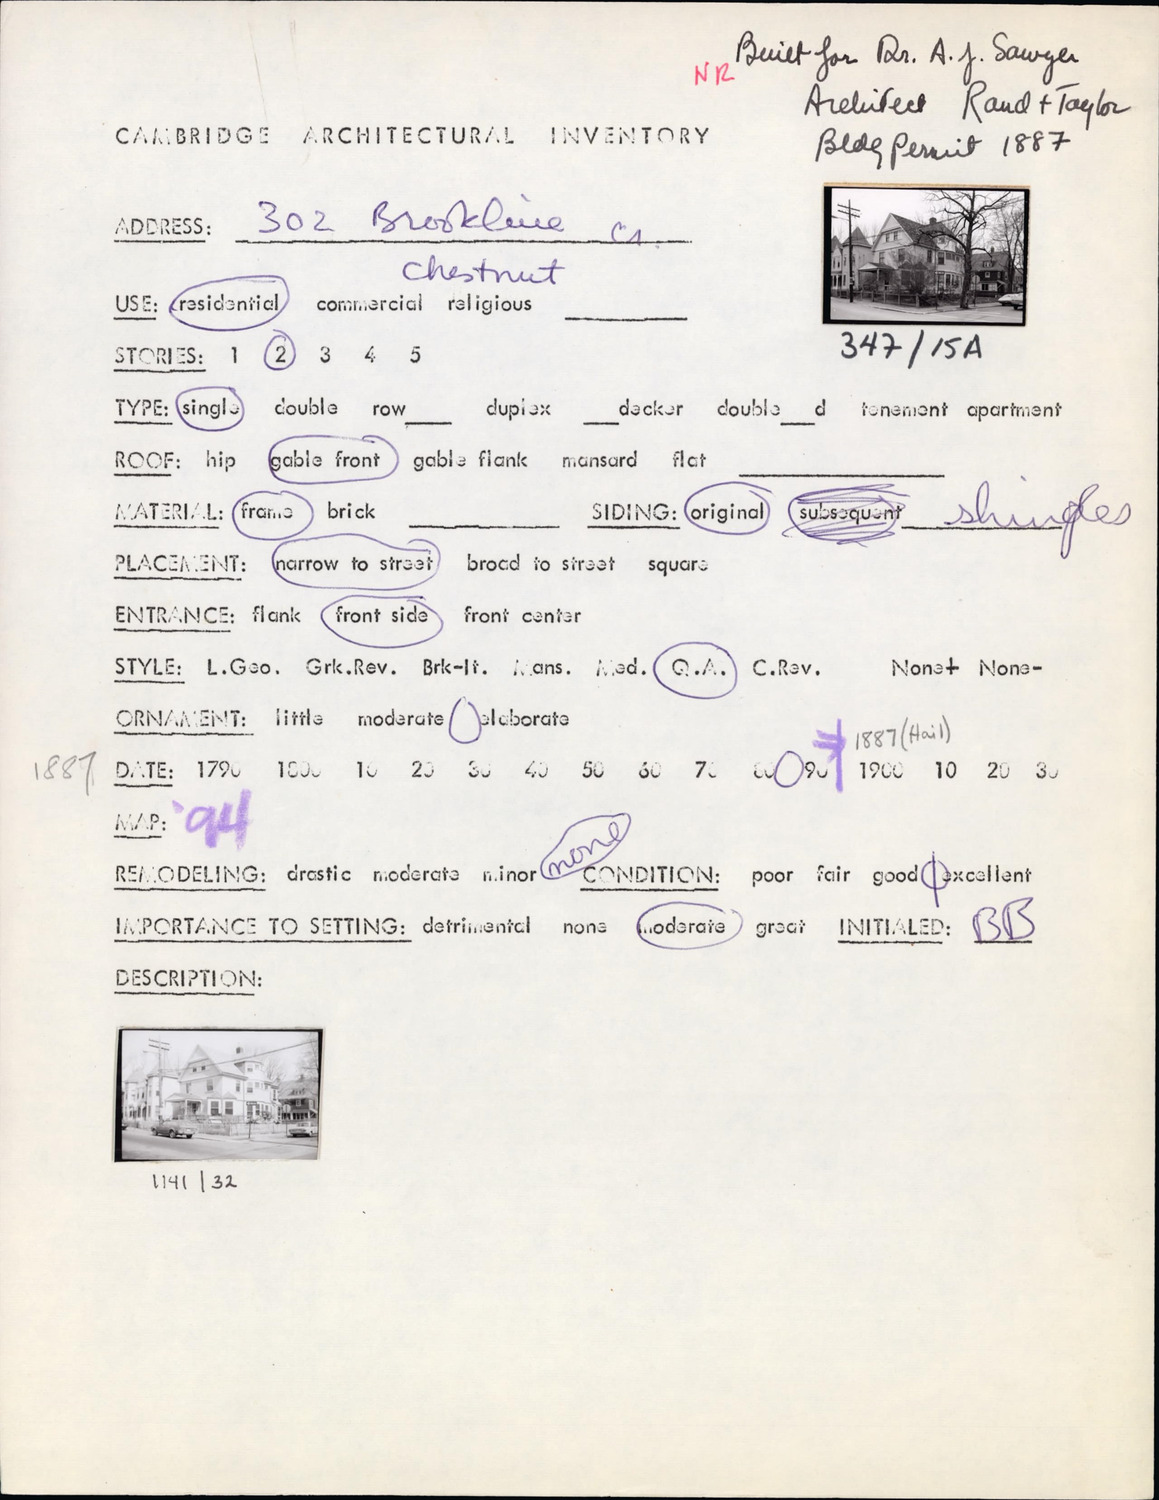 Built for Dr. A. J. Sawyer
NR
Architect Rand + Taylor
Bldg Permit 1887
CAMBRIDGE ARCHITECTURAL INVENTORY
ADDRESS: 302 Brookline cn.
Chestnut
USE: residential commercial religious
347/15A
STORIES: 1 2 3 4 5
TYPE: single double row___ duplex ___decker double___d tenement apartment
ROOF: hip gable front gable flank mansard flat
MATERIAL: frame brick SIDING: original subsequent shingles
PLACEMENT: narrow to street broad to street square
ENTRANCE: flank front side front center
STYLE: L.Geo. Grk.Rev. Brk-It. Mans. Med. Q.A. C.Rev. None+ None-
ORNAMENT: little moderate elaborate
1887 (Hail)
1887 DATE: 1790 1800 10 20 30 40 50 60 70 80 90 1900 10 20 30
MAP: '94
REMODELING: drastic moderate minor none CONDITION: poor fair good excellent
IMPORTANCE TO SETTING: detrimental none moderate great INITIALED: BB
DESCRIPTION:
1141/32